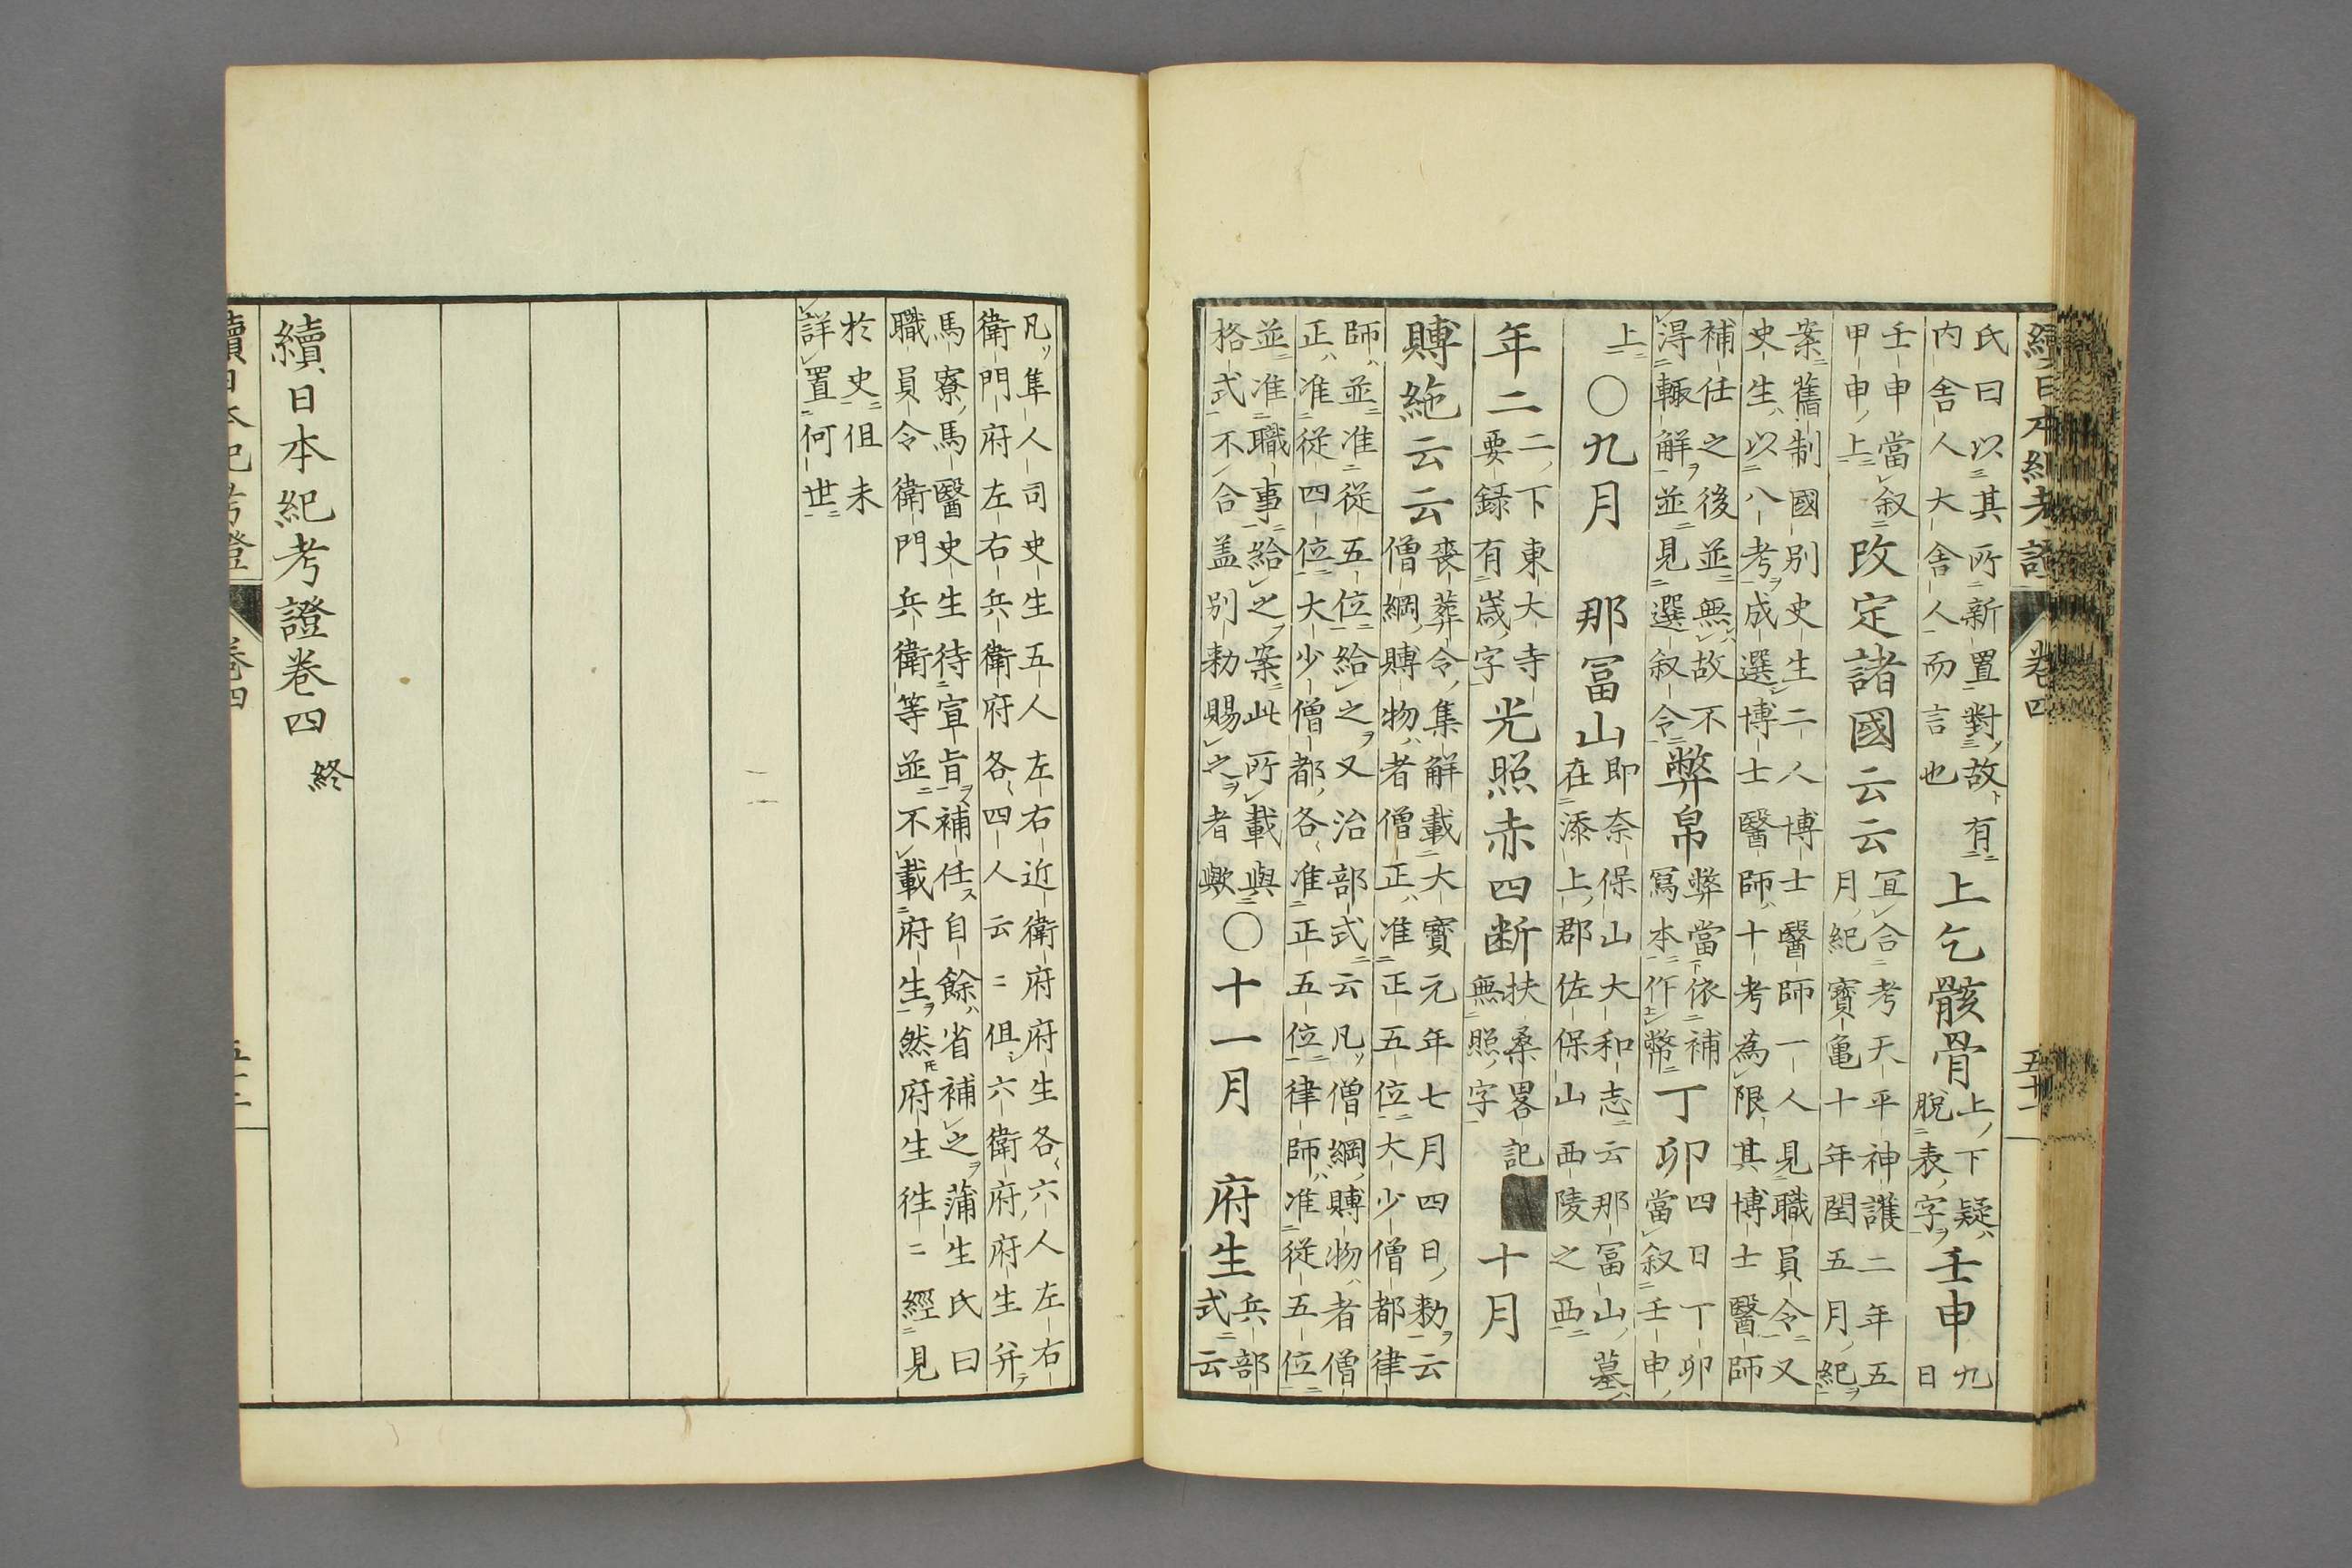 續日本紀考證 卷四 五十一
氏曰以其所新置對故有
内舍人大舍人而言也
上乞骸骨
上下疑
脱表字
壬申
九
日
壬申當叙
甲申上
改定諸國云云
宜合考天平神護二年五
月紀寶亀十年閏五月紀
案舊制國別史生二人博士醫師一人見職員令又
史生以八考成選博士醫師十考為限其博士醫師
補任之後並無故不
得輙解並見選叙令
弊帛
弊當依補
寫本作幣
丁卯
四日丁卯
當叙壬申
上
○九月 那冨山
即奈保山大和志云那冨山墓
在添上郡佐保山西陵之西
年二
二下東大寺
要録有嵗字
光照赤四断
扶桑畧記
無照字
十月
賻絁云云
喪葬令集解載大寶元年七月四日勅云
僧綱賻物者僧正准正五位大少僧都律
師並准從五位給之又治部式云凡僧綱賻物者僧
正准從四位大少僧都各准正五位律師准從五位
並准職事給之案此所載與
格式不合盖別勅賜之者歟
○十一月 府生
兵部
式云
凡隼人司史生五人左右近衛府府生各六人左右
衛門府左右兵衛府各四人云〻但六衛府府生并
馬寮馬醫史生待宣旨補任自餘省補之蒲生氏曰
職員令衛門兵衛等並不載府生然府生徃〻經見
於史但未
詳置何世
續日本紀考證卷四 終
續日本紀考證 卷四 五十二